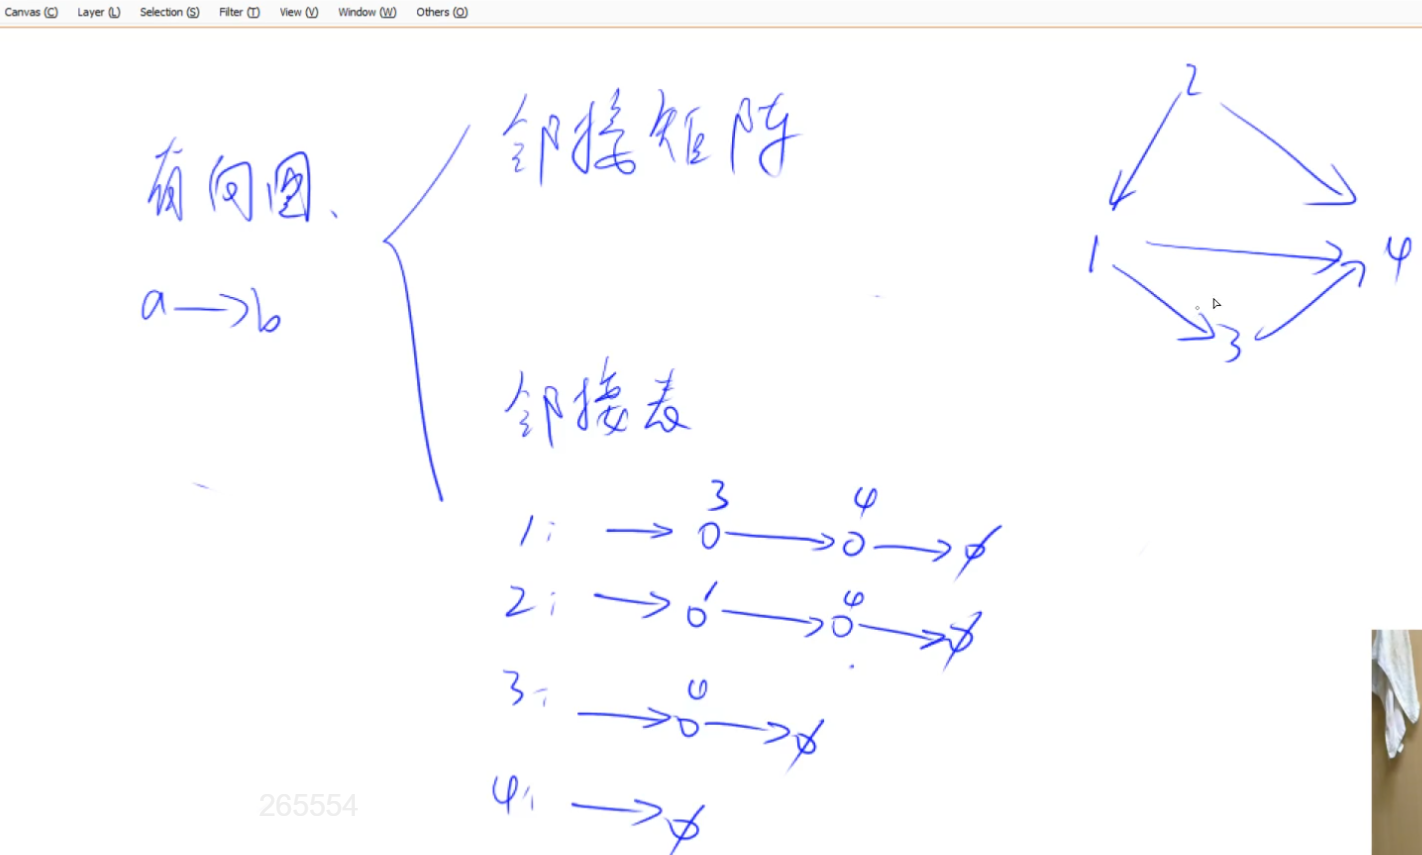 Canvas (C) Layer (L) Selection (S) Filter (T) View (V) Window (W) Others (O)
邻接矩阵
有向图、
a→b
2
1
4
3
邻接表
1: → 3 → 4 → ∅
2: → 1 → 4 → ∅
3: → 4 → ∅
4: → ∅
265554